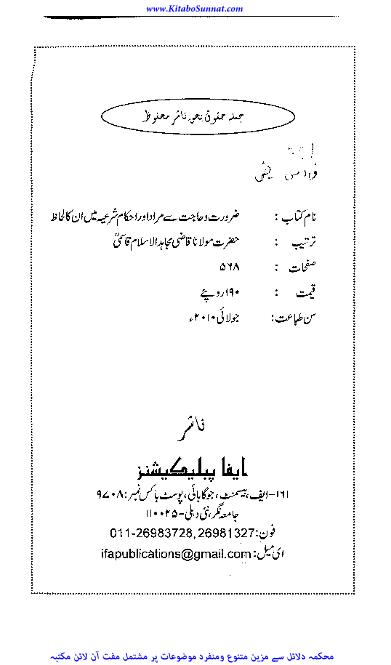 www.KitaboSunnat.com
جملہ حقوق بحق ناشر محفوظ
نام کتاب : ضرورت وحاجت سے مراد اور احکام شرعیہ میں ان کا لحاظ
ترتیب : حضرت مولانا قاضی مجاہد الاسلام قاسمیؒ
صفحات : ۵۶۸
قیمت : ۱۹۰ روپئے
سن طباعت : جولائی ۲۰۱۰ء
ناشر
ایفا پبلیکیشنز
۱۶۱-ایف، بیسمنٹ، جوگابائی، پوسٹ باکس نمبر: ۹۷۰۸
جامعہ نگر، نئی دہلی-۱۱۰۰۲۵
فون: 011-26983728, 26981327
ای میل: ifapublications@gmail.com
محکمہ دلائل سے مزین متنوع ومنفرد موضوعات پر مشتمل مفت آن لائن مکتبہ